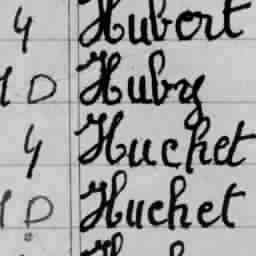 4 Hubert
1 D Huby
4 Huchet
1 D Huchet